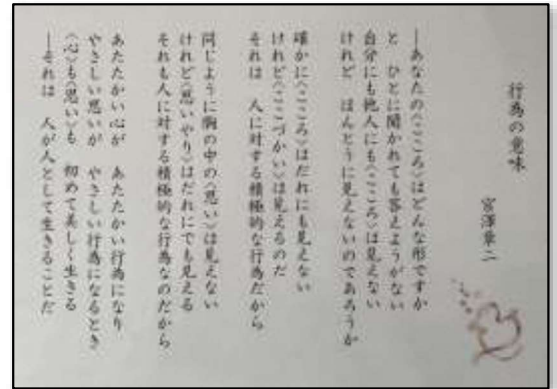 行為の意味
宮澤章二
―あなたの〈こころ〉はどんな形ですか
と　ひとに聞かれても答えようがない
自分にも他人にも〈こころ〉は見えない
けれど　ほんとうに見えないのであろうか
確かに〈こころ〉はだれにも見えない
けれど〈こころづかい〉は見えるのだ
それは　人に対する積極的な行為だから
同じように胸の中の〈思い〉は見えない
けれど〈思いやり〉はだれにでも見える
それも人に対する積極的な行為なのだから
あたたかい心が　あたたかい行為になり
やさしい思いが　やさしい行為になるとき
〈心〉も〈思い〉も　初めて美しく生きる
―それは　人が人として生きることだ